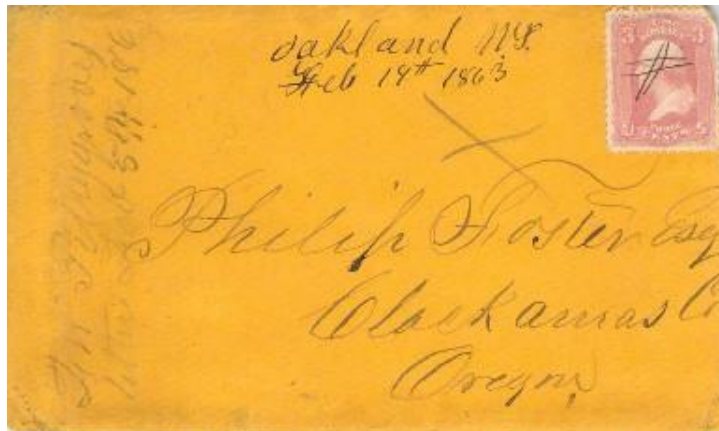 oakland N.Y.
Feb 14th 1863
3 3
Philip Foster Esq
Clackamas Co
Oregon